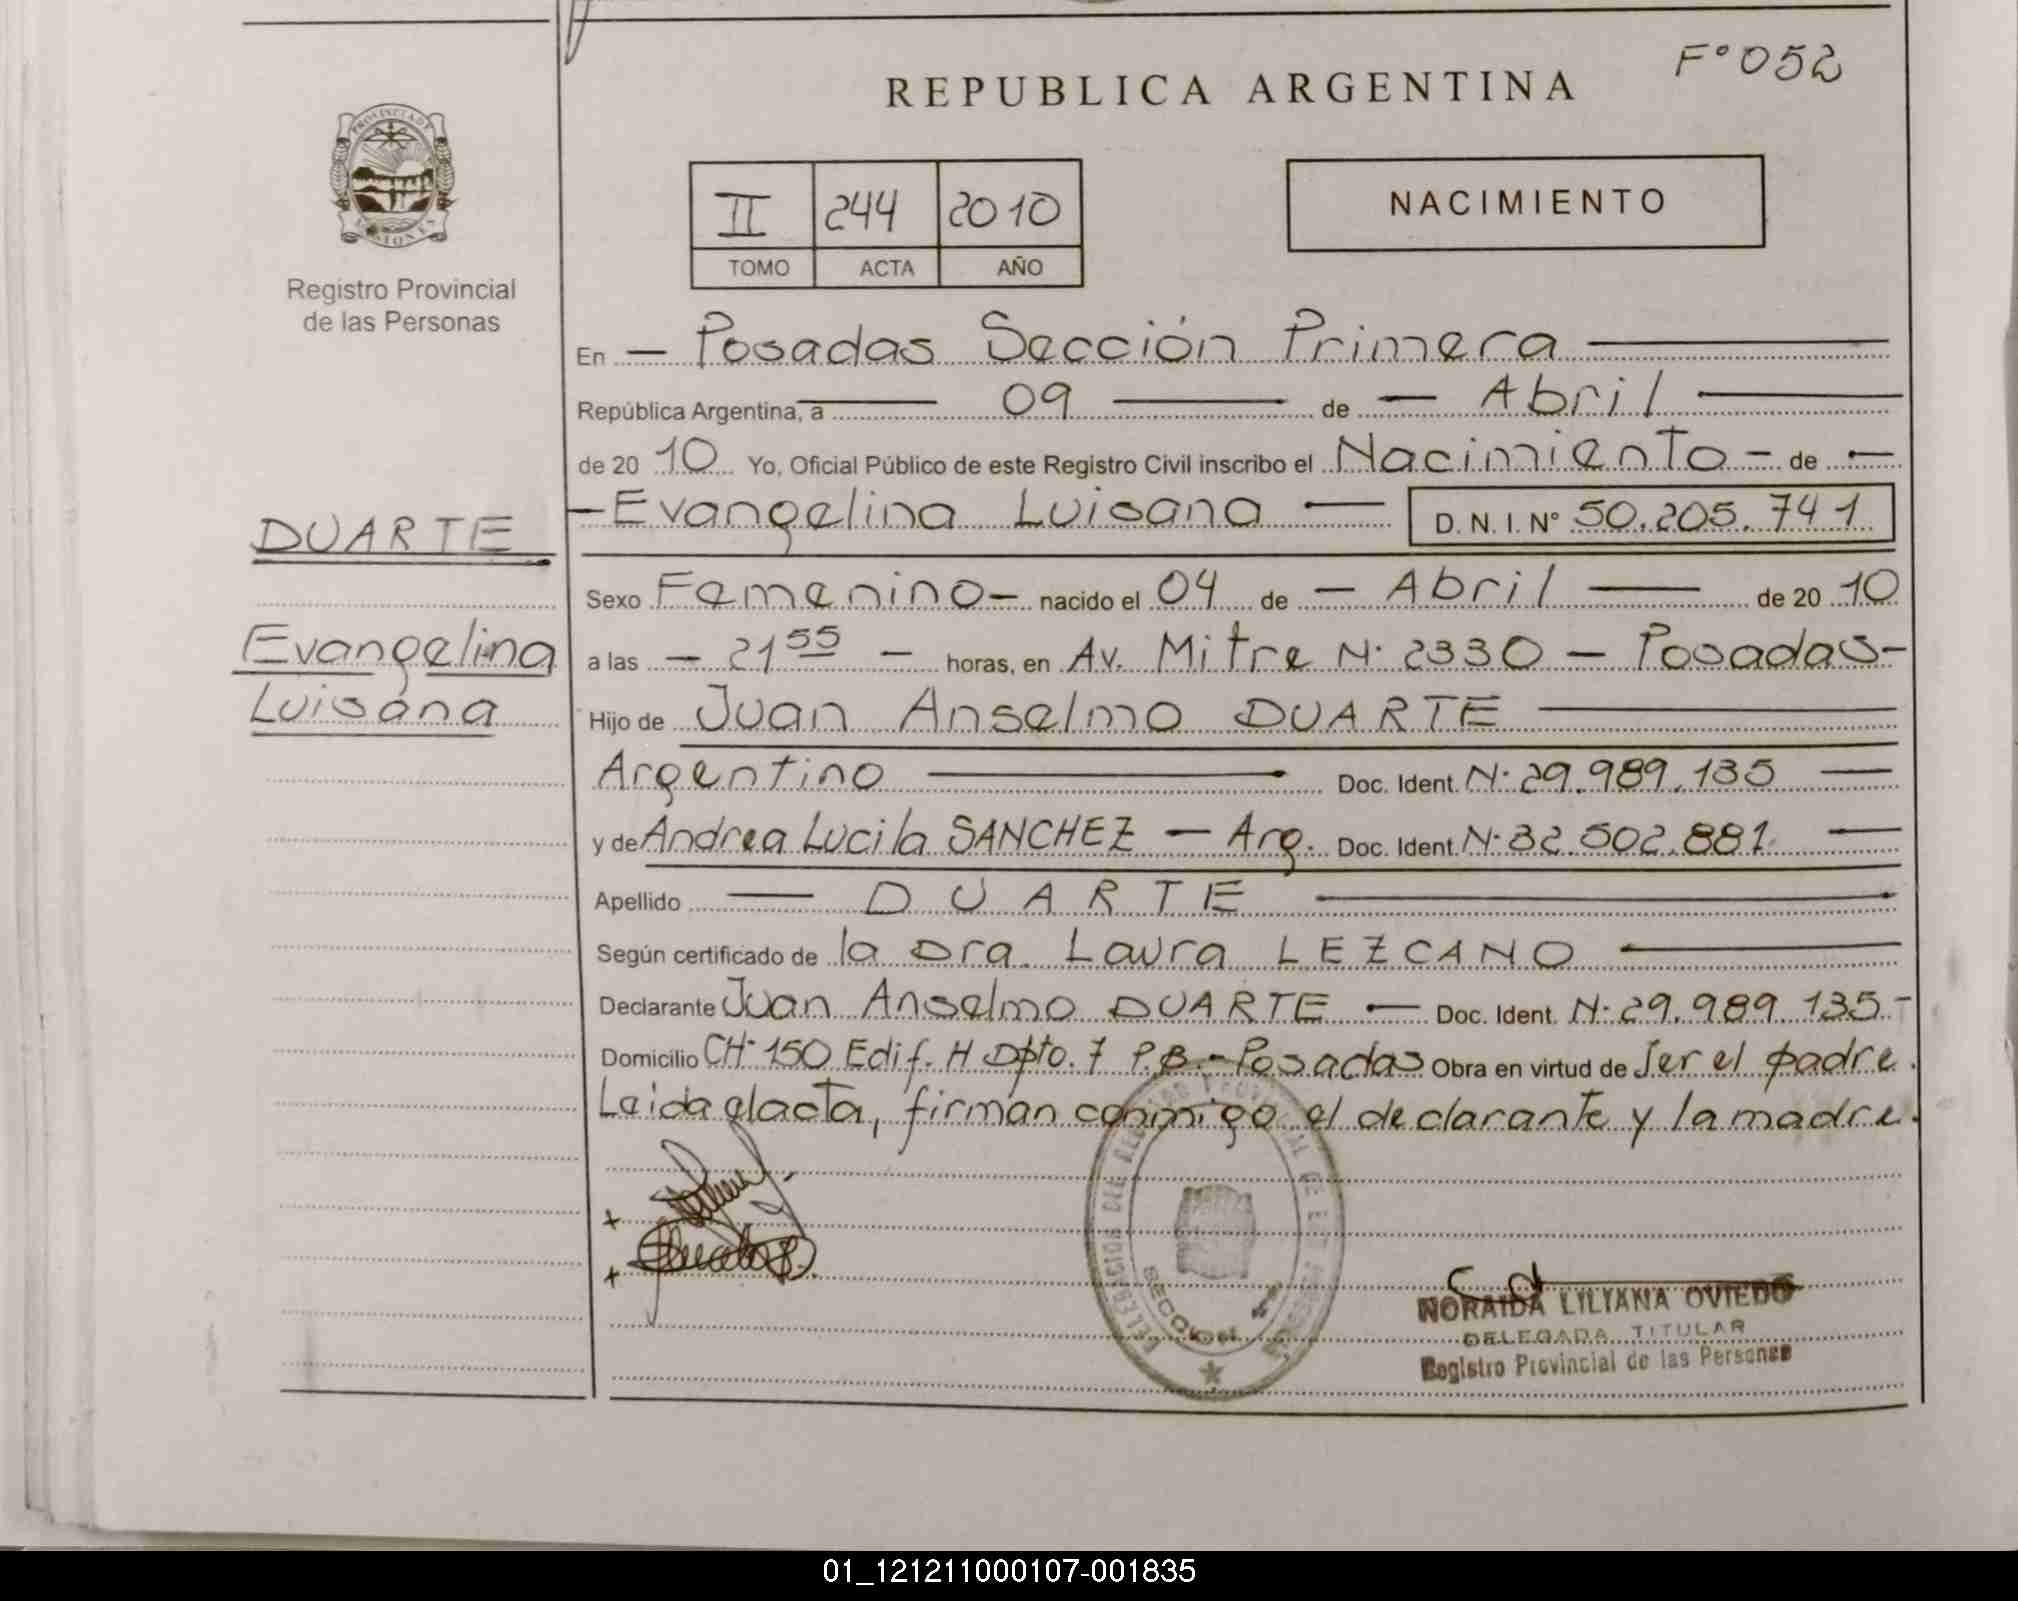 F° 052
REPUBLICA ARGENTINA
PROVINCIA DE
MISIONES
Registro Provincial
de las Personas
II 244 2010
TOMO ACTA AÑO
NACIMIENTO
En — Posadas Sección Primera —
República Argentina, a — 09 — de — Abril —
de 20 10 Yo, Oficial Público de este Registro Civil inscribo el Nacimiento - de —
— Evangelina Luisana — D. N. I. N° 50.205.741
DUARTE
Evangelina
Luisana
Sexo Femenino — nacido el 04 de — Abril — de 20 10
a las — 21 55 — horas, en Av. Mitre N· 2330 — Posadas-
Hijo de Juan Anselmo DUARTE —
Argentino — Doc. Ident. N· 29.989.135 —
y de Andrea Lucila SANCHEZ — Arg. Doc. Ident. N· 32.502.881 —
Apellido — DUARTE —
Según certificado de la Dra. Laura LEZCANO —
Declarante Juan Anselmo DUARTE — Doc. Ident. N· 29.989.135.-
Domicilio CH· 150 Edif. H Dpto. 7 P.B.- Posadas Obra en virtud de ser el padre.
Leida el acta, firman conmigo el declarante y la madre.
NORAIDA LILIANA OVIEDO
DELEGADA TITULAR
Registro Provincial de las Personas
01_121211000107-001835